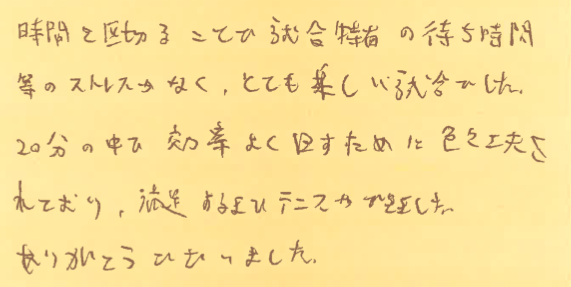 時間を区切ることで試合特有の待ち時間
等のストレスがなく、とても楽しい試合でした。
20分の中で効率よく回すために色々工夫さ
れており、満足するまでテニスができました。
ありがとうございました。